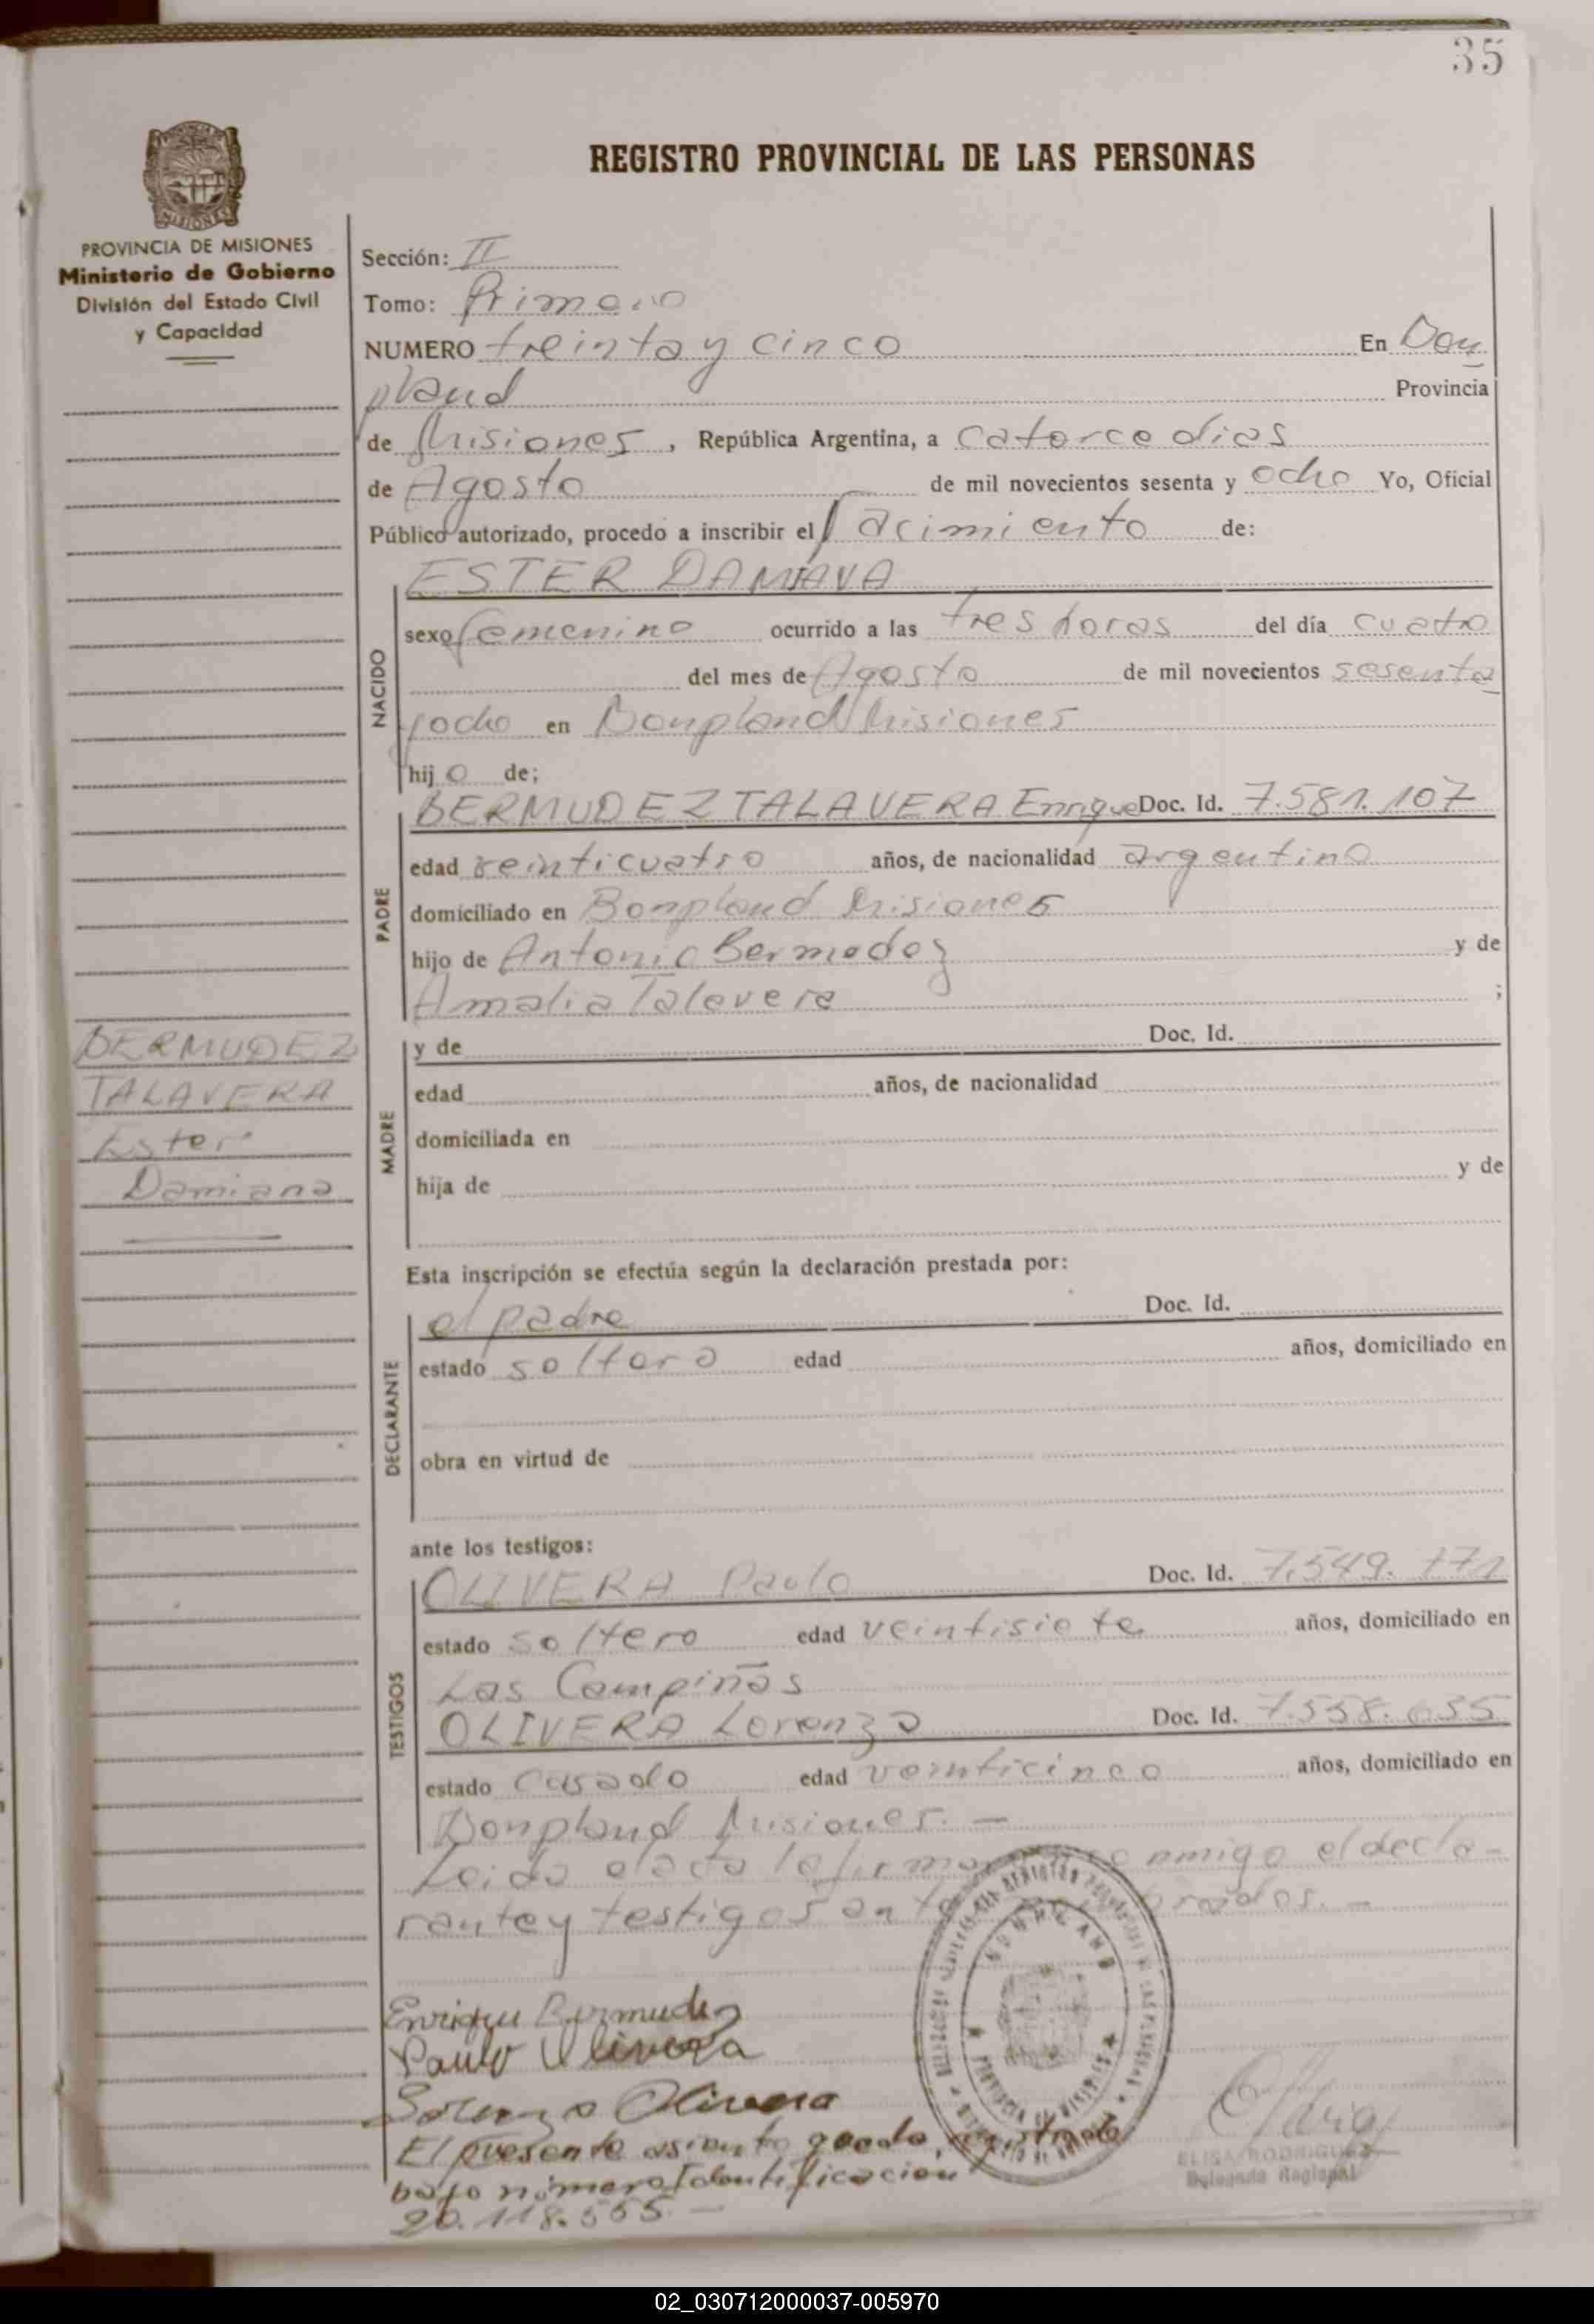 35
REGISTRO PROVINCIAL DE LAS PERSONAS
PROVINCIA DE MISIONES
Ministerio de Gobierno
División del Estado Civil
y Capacidad
Sección: II
Tomo: Primero
NUMERO treinta y cinco En Bon
pland Provincia
de Misiones, República Argentina, a catorce dias
de Agosto de mil novecientos sesenta y ocho Yo, Oficial
Público autorizado, procedo a inscribir el nacimiento de:
NACIDO
ESTER DAMIANA
sexo femenino ocurrido a las tres horas del día cuatro
del mes de Agosto de mil novecientos sesenta
y ocho en Bonpland Misiones
hijo de;
PADRE
BERMUDEZ TALAVERA Enrique Doc. Id. 7.581.107
edad veinticuatro años, de nacionalidad argentino
domiciliado en Bonpland Misiones
hijo de Antonio Bermudez y de
Amalia Talavera ;
BERMUDEZ
TALAVERA
Ester
Damiana
MADRE
y de Doc. Id.
edad años, de nacionalidad
domiciliada en
hija de y de
Esta inscripción se efectúa según la declaración prestada por:
DECLARANTE
el padre Doc. Id.
estado soltero edad años, domiciliado en
obra en virtud de
ante los testigos:
TESTIGOS
OLIVERA Paulo Doc. Id. 7.549.771
estado soltero edad veintisiete años, domiciliado en
Las Campiñas
OLIVERA Lorenzo Doc. Id. 7.558.635
estado casado edad veinticinco años, domiciliado en
Bonpland Misiones. —
Leida el acta la firma conmigo el decla-
rante y testigos ante —
BONPLAND
Enrique Bermudez
Paulo Olivera
Lorenzo Olivera
El presente asiento queda registrado
bajo número Identificacion
20.118.565 —
ELISA RODRIGUEZ
Delegada Regional
02_030712000037-005970